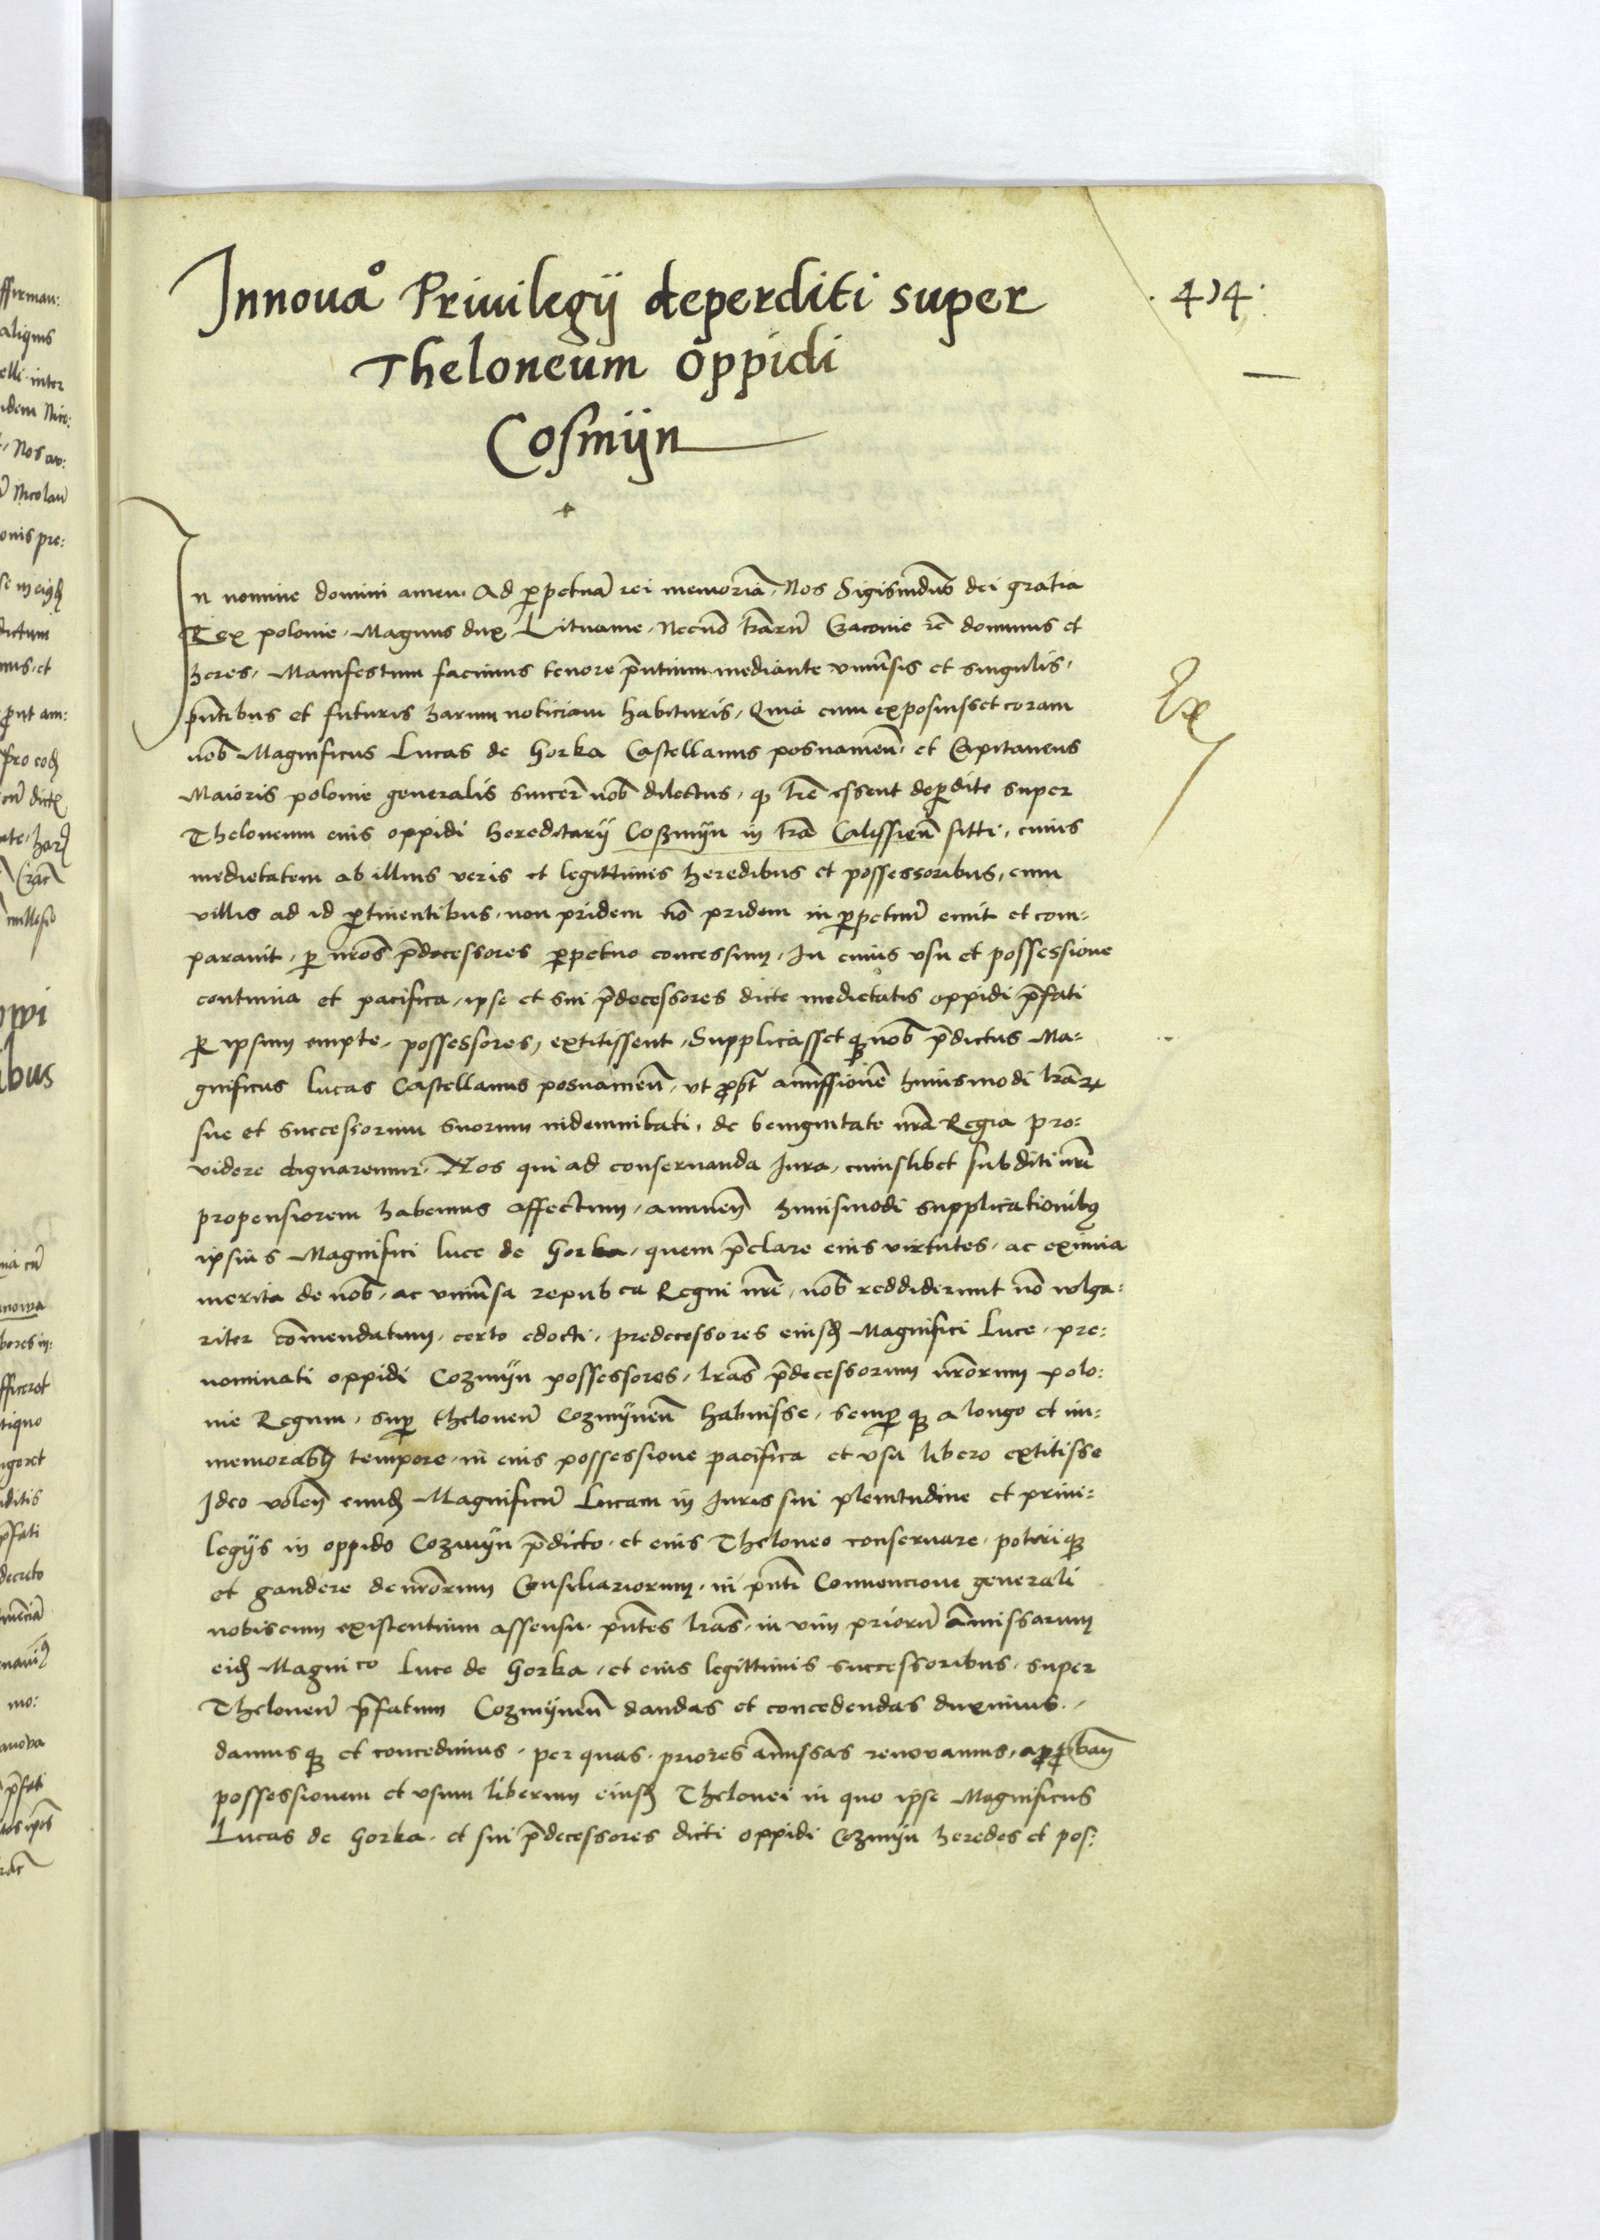 Innouaº Priuilegij deperditi super
·414·
Theloneum oppidi
Cosmijn
In nomine domini amen. Ad ꝑpetuã rei memoriã, Nos Sigismd̃us dei gratia
Rex polonie, Magnus dux Lituanie, Necnõ trarũ Cracouie etc̃ dominus et
heres, Manifestum facimus tenore pñtium mediante vniuẽsis et singulis,
pñtibus et futuris harum noticiam habituris, Quia cum exposuisset coram
nob̃ Magnificus Lucas de Gorka Castellanus posnanieñ, et Capitaneus
Maioris polonie generalis sincer̃ nob̃ dilectus, qꝫ lr̃e essent deꝑdite super
Theloneum eius oppidi hereditarij Coszmijn in tr̃a Calissieñ sitti, cuius
medietatem ab illius veris et legittimis heredibus et possessoribus, cum
villis ad id ꝑtinentibus, non pridem nõ pridem in ꝑpetuũ emit et com-
parauit, ꝑ nr̃os p̃decessores ꝑpetuo concessum, In cuius vsu et possessione
continua et pacifica, ipse et sui p̃decessores dicte medietatis oppidi p̃fati
ꝑ ipsum empte, possessores, extitissent, Supplicasset qꝫ nob̃ p̃dictus Ma-
gnificus lucas Castellanus posnanieñ, vt ꝓpt̃ amissionẽ huiusmodi lr̃aꝝ
sue et successorum suorum indemnitati, de benignitate nr̃a Regia pro:
videre dignaremur. Nos qui ad conseruanda Iura, cuiuslibet subditi nr̃i
propensiorem habemus affectum, annueñ huiusmodi supplicationibꝫ
ipsius Magnifici luce de Gorka, quem p̃clare eius virtutes, ac eximia
merita de nob̃, ac vniuẽsa repub ca Regni nr̃i, nob̃ reddiderunt nõ volga:
riter cõmendatum, certo edocti, predecessores eiusdꝫ Magnifici Luce, pre:
nominati oppidi Cozmijn possessores, lr̃as p̃decessorum nr̃orum polo:
nie Regum, suꝑ theloneũ Cozmijneñ habuisse, semꝑ qꝫ a longo et im:
memorabꝫ tempore, in eius possessione pacifica et vsu libero extitisse
Ideo voleñ eundꝫ Magnificũ Lucam in Iuris sui plenitudine et priui-
legijs in oppido Cozmijn p̃dicto, et eius Theloneo conseruare, potiri qꝫ
et gaudere de nr̃orum Consiliariorum, in pñti Conuencione generali
nobiscum existentium assensu, pñtes lr̃as, in vim priorũ Amissarum
eidꝫ Magni co Luce de Gorka, et eius legittimis successoribus, super
Theloneũ p̃fatum Cozmijneñ dandas et concedendas duximus.
damus qꝫ et concedimus, per quas, priores amissas renouamus, aꝓbañ
possessionem et vsum liberum eiusdꝫ Thelonei in quo ipse Magnificus
Lucas de Gorka, et sui p̃decessores dicti oppidi Cozmijn heredes et pos: